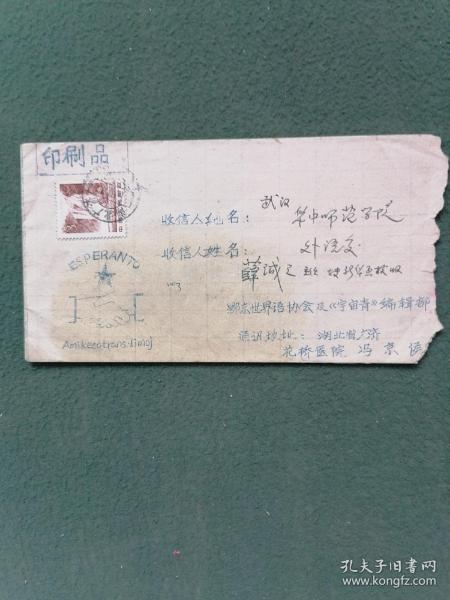 印刷品
收信人地名：武汉 华中师范学院
收信人姓名：外语系
薛诚之
ESPERANTO
Amikeco trans limoj
鄂东世界语协会及《宇宙音》编辑部
通讯地址：湖北省广济
花桥医院 冯京
孔夫子旧书网
www.kongfz.com